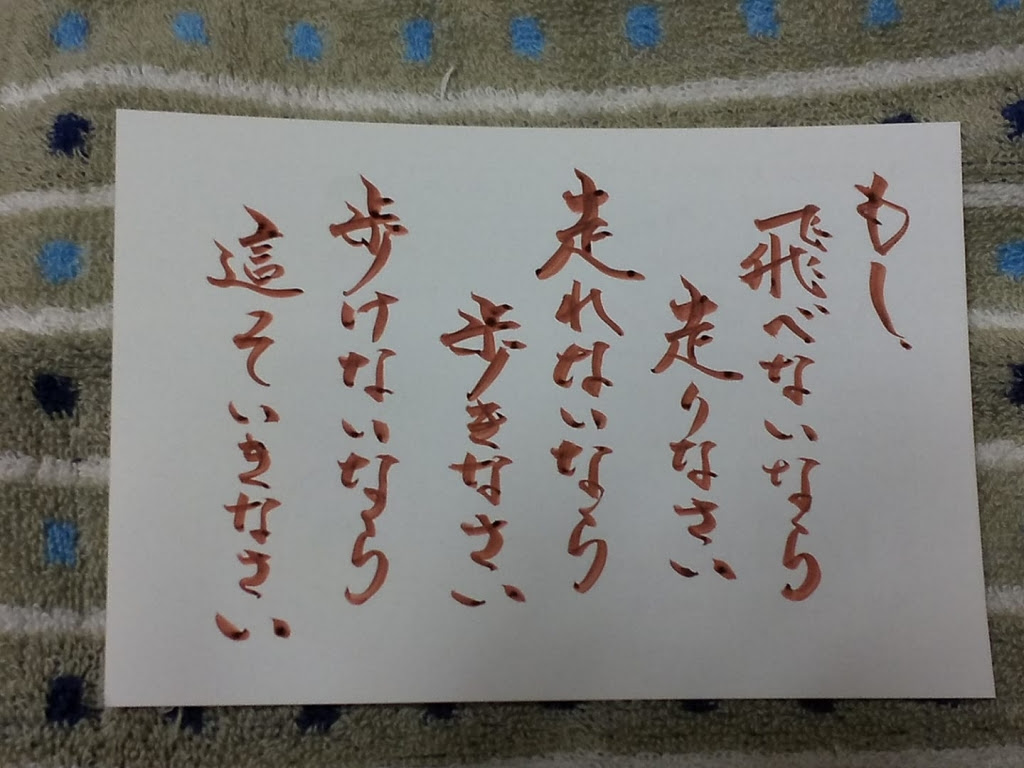 もし
飛べないなら
走りなさい
走れないなら
歩きなさい
歩けないなら
這っていきなさい